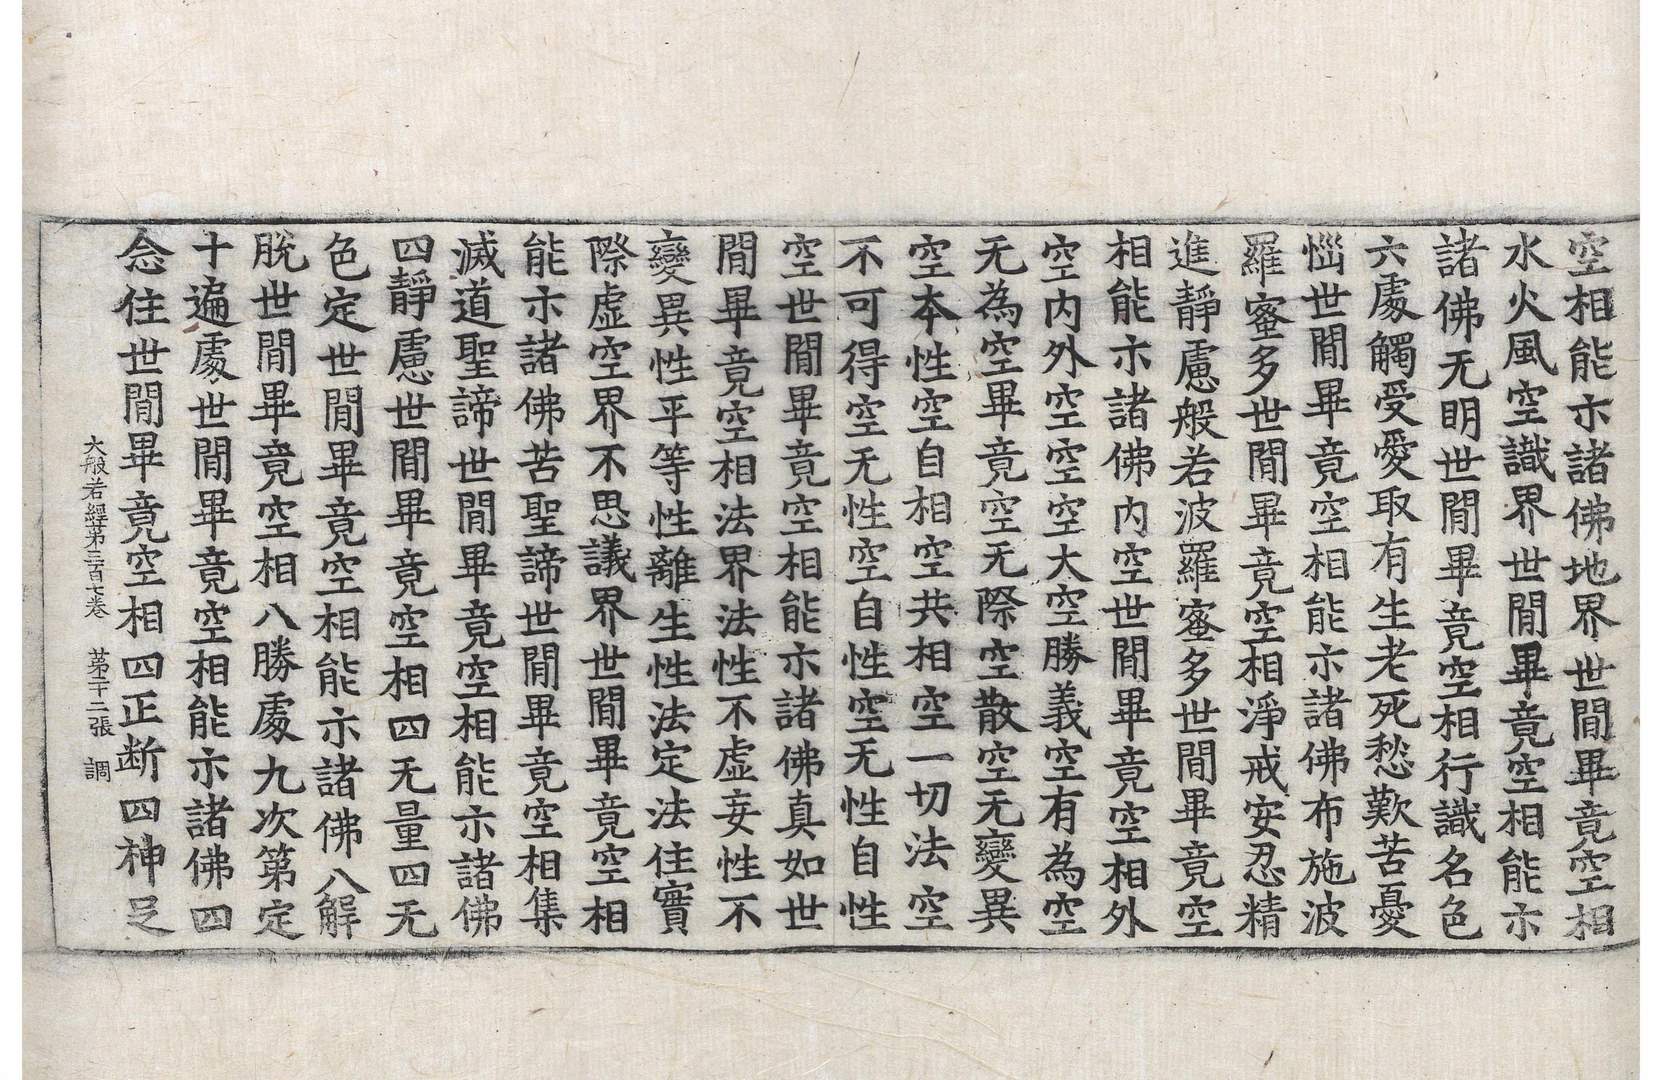 空相能示諸佛地界世間畢竟空相
水火風空識界世間畢竟空相能示
諸佛无明世間畢竟空相行識名色
六處觸受愛取有生老死愁歎苦憂
惱世間畢竟空相能示諸佛布施波
羅蜜多世間畢竟空相淨戒安忍精
進靜慮般若波羅蜜多世間畢竟空
相能示諸佛內空世間畢竟空相外
空內外空空空大空勝義空有為空
无為空畢竟空无際空散空无變異
空本性空自相空共相空一切法空
不可得空无性空自性空无性自性
空世間畢竟空相能示諸佛真如世
間畢竟空相法界法性不虛妄性不
變異性平等性離生性法定法住實
際虛空界不思議界世間畢竟空相
能示諸佛苦聖諦世間畢竟空相集
滅道聖諦世間畢竟空相能示諸佛
四靜慮世間畢竟空相四无量四无
色定世間畢竟空相能示諸佛八解
脫世間畢竟空相八勝處九次第定
十遍處世間畢竟空相能示諸佛四
念住世間畢竟空相四正斷四神足
大般若經第三百七卷　第二十二張　調